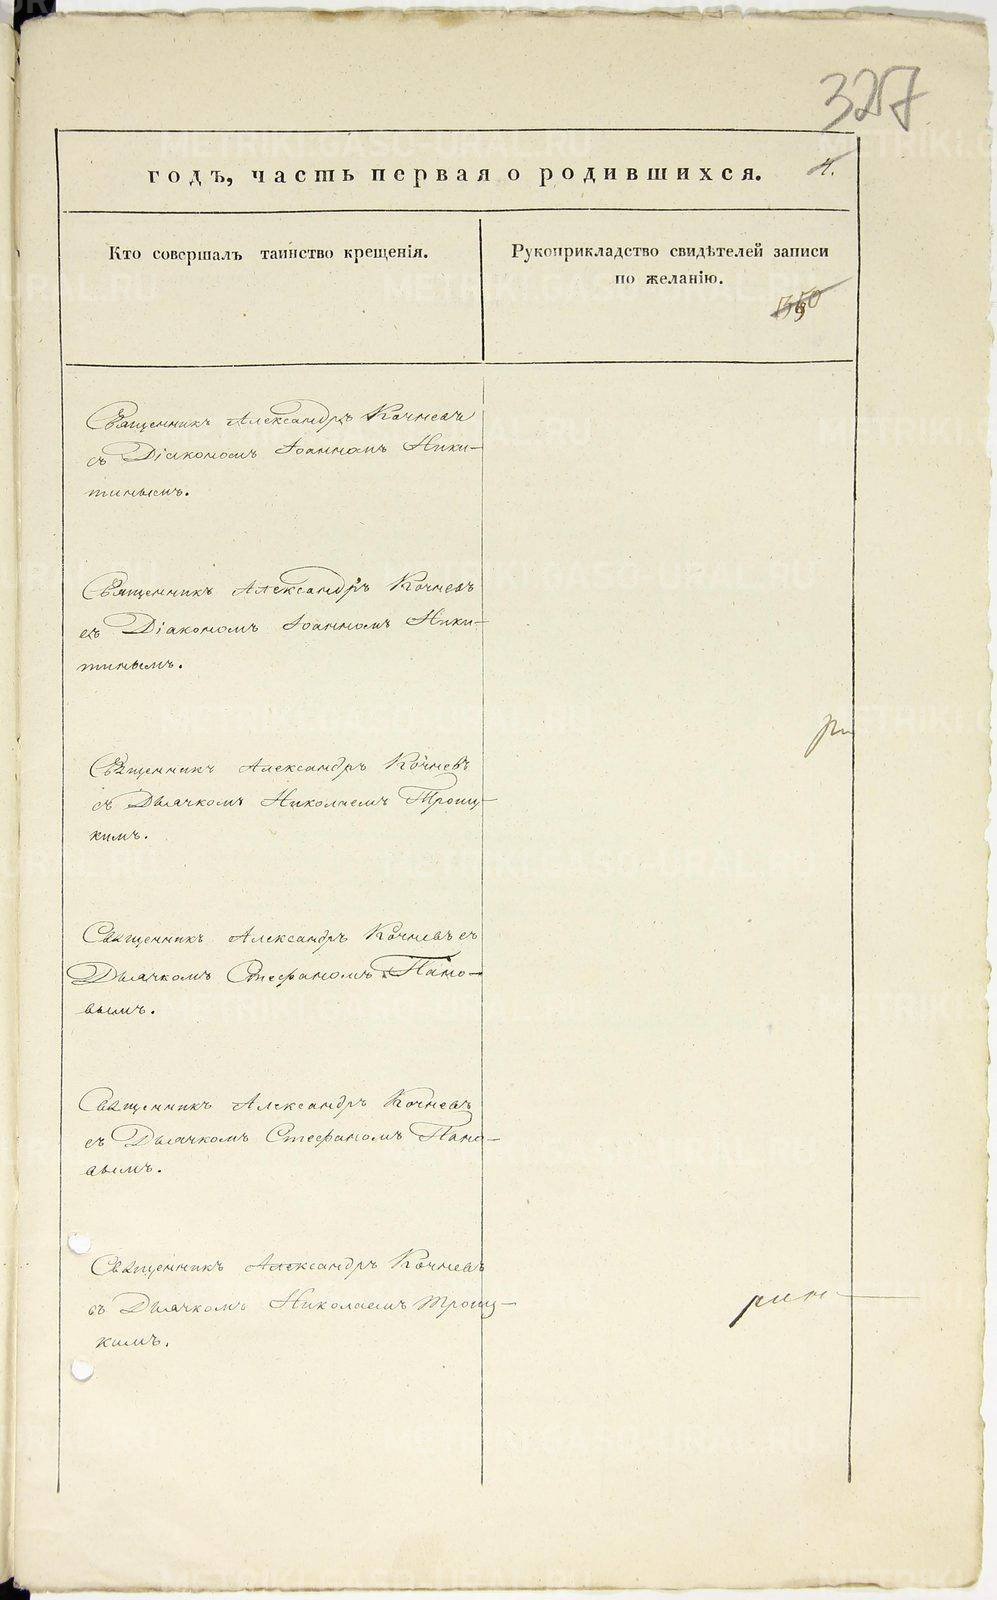 327
годъ, часть первая о родившихся.
4.
Кто совершалъ таинство крещенія.
Рукоприкладство свидѣтелей записи
по желанію.
Священникъ Александръ Кочневъ
съ Діакономъ Іоанномъ Ники-
тинымъ.
Священникъ Александръ Кочневъ
съ Діакономъ Іоанномъ Ники-
тинымъ.
Священникъ Александръ Кочневъ
съ Дьячкомъ Николаемъ Троиц-
кимъ.
Священникъ Александръ Кочневъ съ
Дьячкомъ Стефаномъ Пано-
вымъ.
Священникъ Александръ Кочневъ
съ Дьячкомъ Стефаномъ Пано-
вымъ.
Священникъ Александръ Кочневъ
съ Дьячкомъ Николаемъ Троиц-
кимъ.
METRIKI.GASO-URAL.RU